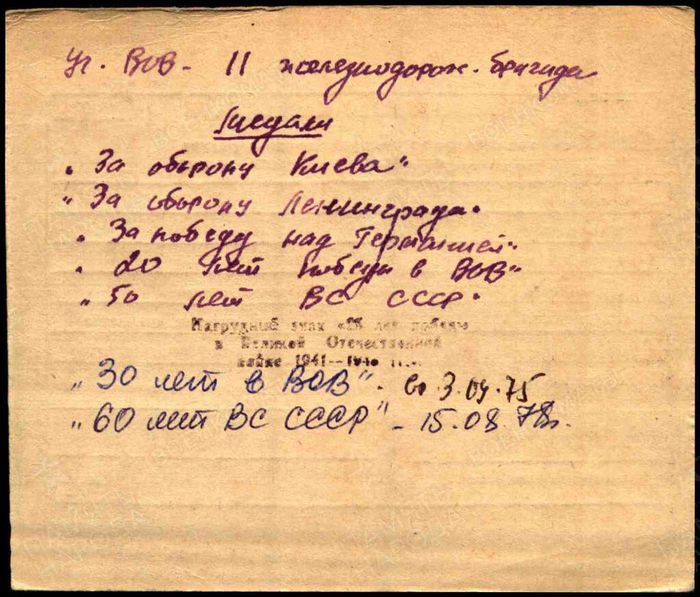 Уч. ВОВ - 11 железнодорож. бригада
Медали
"За оборону Киева"
"За оборону Ленинграда"
"За победу над Германией"
"20 лет победы в ВОВ"
"50 лет ВС СССР"
Нагрудный знак «25 лет победы
в Великой Отечественной
войне 1941—1945 гг.»
"30 лет в ВОВ" - 3.04.75
"60 лет ВС СССР" - 15.08.78г.